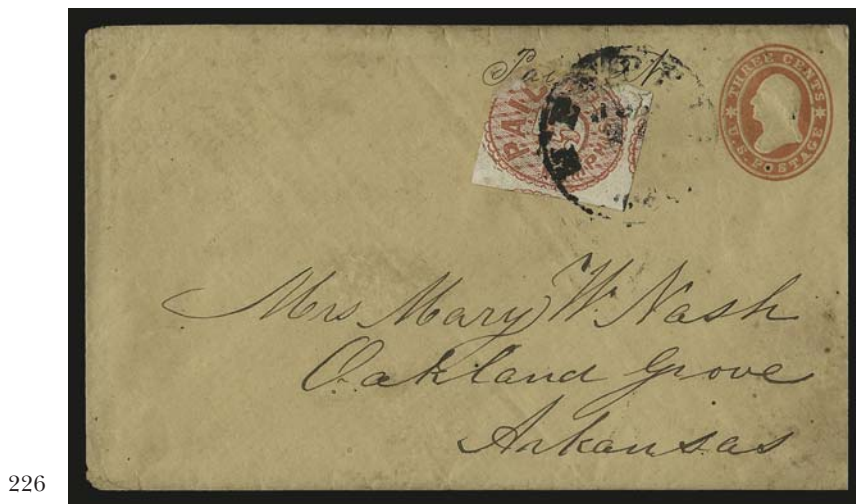 PAID
THREE CENTS
U.S. POSTAGE
Mrs Mary W. Nash
Oakland Grove
Arkansas
226